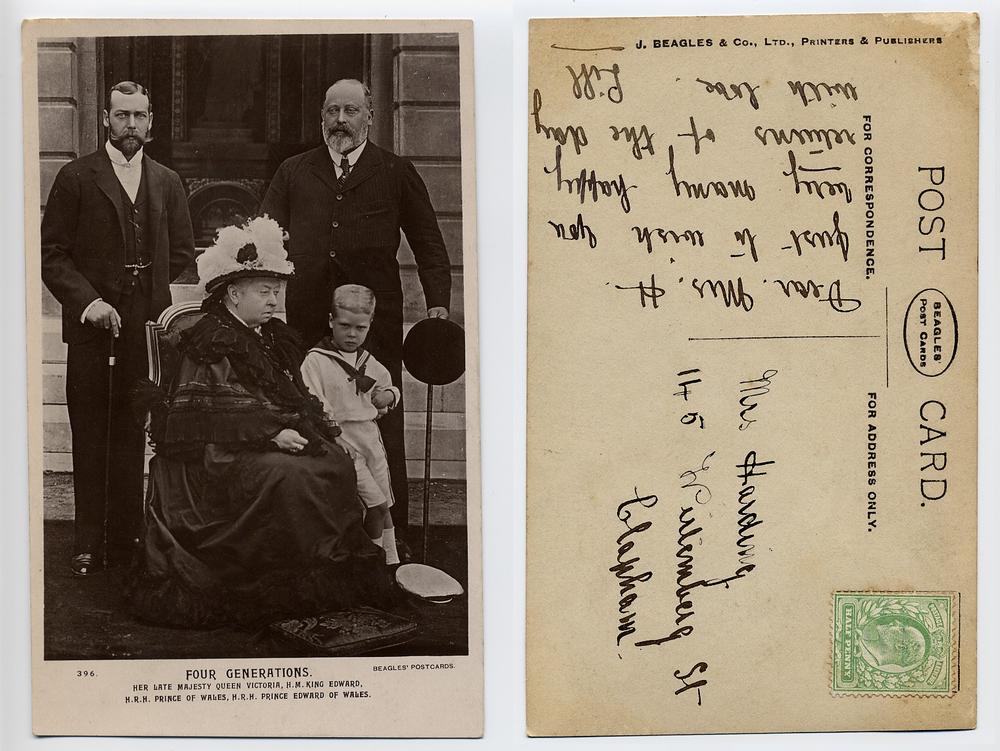 396.
FOUR GENERATIONS.
BEAGLES' POSTCARDS.
HER LATE MAJESTY QUEEN VICTORIA, H.M. KING EDWARD,
H.R.H. PRINCE OF WALES, H.R.H. PRINCE EDWARD OF WALES.
POST CARD.
BEAGLES'
POST CARDS
FOR CORRESPONDENCE.
FOR ADDRESS ONLY.
J. BEAGLES & CO., LTD., PRINTERS & PUBLISHERS
Dear Mrs. H.
Just to wish you
very many happy
returns of the day
with love. Lill
Mrs Harding
145 St
Clapham
HALF PENNY